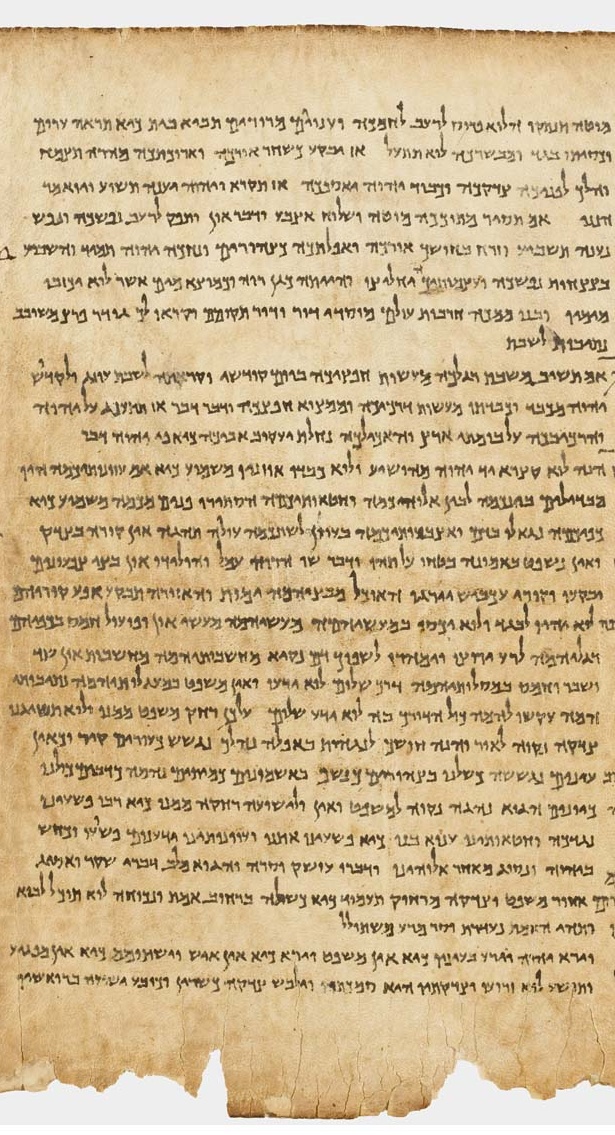 מוטה תנתקו הלוא פרוס לרעב לחמכה ועניים מרודים תביא בית כיא תראה ערום
וכסיתו בגד ומבשרכה לוא תתעלם אז יבקע כשחר אורכה וארוכתכה מהרה תצמח
והלך לפניכה צדקכה וכבוד יהוה יאספכה אז תקרא ויהוה יענה תשוע ויואמר
הנני אם תסיר מתוככה מוטה ושלוח אצבע ודבר און ותפק לרעב נפשכה ונפש
נענה תשביע וזרח בחושך אורכה ואפלתכה כצהורים ונחכה יהוה תמיד והשביע
בצצחות נפשכה ועצמותיך יחליצו והייתה כגן רוה וכמוצא מים אשר לוא יכזבו
מימיו ובנו ממכה חרבות עולם מוסדי דור ודור תקומם וקראו לך גודר פרץ משובב
נתיבות לשבת
אם תשיב משבת רגלכה מעשות חפציכה ביום קודשי וקראתה לשבת עונג ולקדוש
יהוה מכבד וכבדתו מעשות דרכיכה וממצוא חפצכה ודבר דבר אז תתענג על יהוה
והרכיבכה על בומתי ארץ והאכילכה נחלת יעקוב אביכה כיא פי יהוה דבר
הנה לוא קצרא יד יהוה מהושיע ולוא כבדה אוזניו משמוע כיא אם עוונותיכמה היו
מבדילים בינכמה לבין אלוהיכמה וחטאותיכמה הסתירו פנים מכמה משמוע כיא
כפיכמה נגאלו בדם ואצבעותיכמה בעוון לשונכמה עולה תהגה אין קורה בצדק
ואין נשפט באמונה בטחו על תהו ודבר שו הרוה עמל והולידו און ביצי צפעונים
ובקעו וקורי עכביש יארגו האוכל מביציהמה ימות והאזורה תבקע אפעה קוריהם
לוא יהיו לבגד ולוא יתכסו במעשיהמה מעשיהמה מעשי און ופועל חמס בכפיהם
רגליהמה לרע ירוצו וימהרו לשפוך דם נקיא מחשבותיהמה מחשבות און שוד
ושבר וחמס במסלותיהמה דרך שלום לוא ידעו ואין משפט במעגלותיהמה נתיבותי
המה עקשו להמה כול הדורך בה לוא ידע שלום על כן רחק משפט ממנו ולוא תשיגנו
צדקה נקוה לאור והנה חושך לנגוהות באפלה נהלך נגשש כעורים קיר וכאין
עינים נגששה כשלנו בצהורים כנשף באשמונים כמיתים נהמה כדובים כולנו
כיונים הגוא נהגה נקוה למשפט ואין ולישועה רחקה ממנו כיא רבו פשעינו
נגדכה וחטאותינו ענוא בנו כיא פשעינו אתנו ועוונותינו ידענום פשוע וכחש
ביהוה ונסוג מאחר אלוהינו ודברו עושק וסרה והגוא מלב דברי שקר ואסיג
אחור משפט וצדקה מרחוק תעמוד כיא כשלה ברחוב אמת ונכוחה לוא תוכל לבוא
ותהי האמת נעדרת וסר מרע משתולל
וירא יהוה וירע בעיניו כיא אין משפט וירא כיא אין איש וישתומם כיא אין מפגיע
ותושע לוא זרועו וצדקתיו היא סמכתהו וילבש צדקה כשרין וכובע ישועה ברואשו